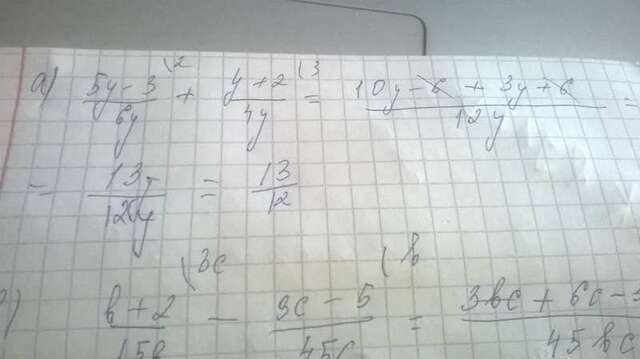 а) (5y - 3)/(6y) (2 + (y + 2)/(4y) (3 = (10y - 6 + 3y + 6)/(12y) =
= (13y)/(12y) = 13/12
(b + 2)/(15b) (3c - (3c - 5)/(45c) (b = (3bc + 6c -)/(45bc)